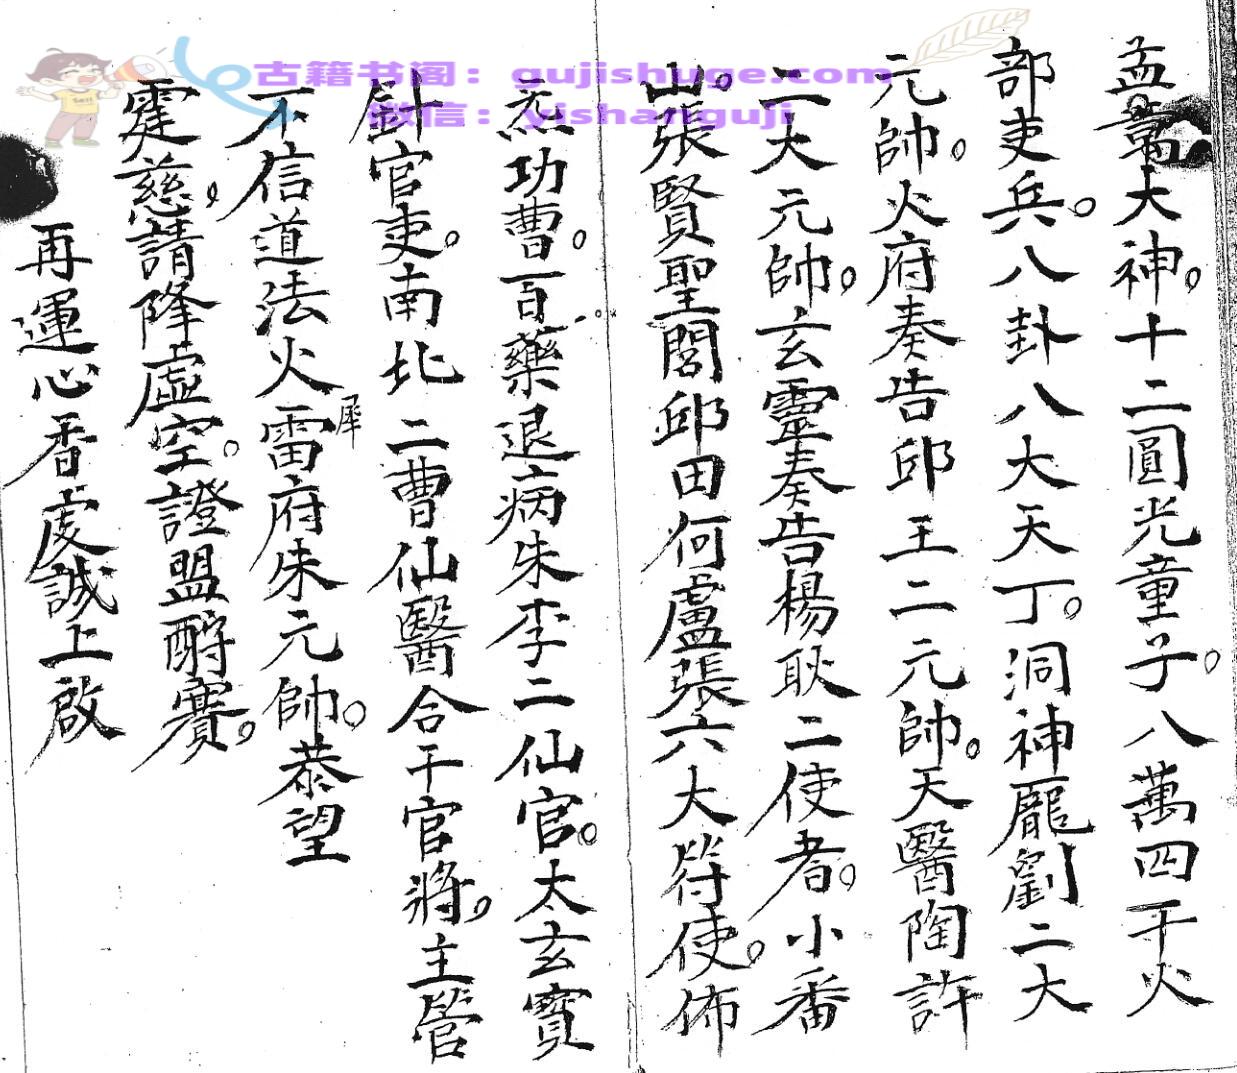 古籍书阁：gujishuge.com
微信：yishanguji
孟章大神。十二圓光童子。八萬四千火
部吏兵。八卦八大天丁。洞神龐劉二大
元帥。火府奏告邱王二元帥。天醫陶許
二大元帥。玄靈奏告楊耿二使者。小番
山。張賢聖閻邱田何盧張六大符使。佈
炁功曹。百藥退病朱李二仙官。太玄寶
針官吏。南北二曹仙醫合干官將。主管
不信道法火犀雷府朱元帥。恭望
霆慈。請降虛空。證盟酧賽。
再運心香虔誠上啟